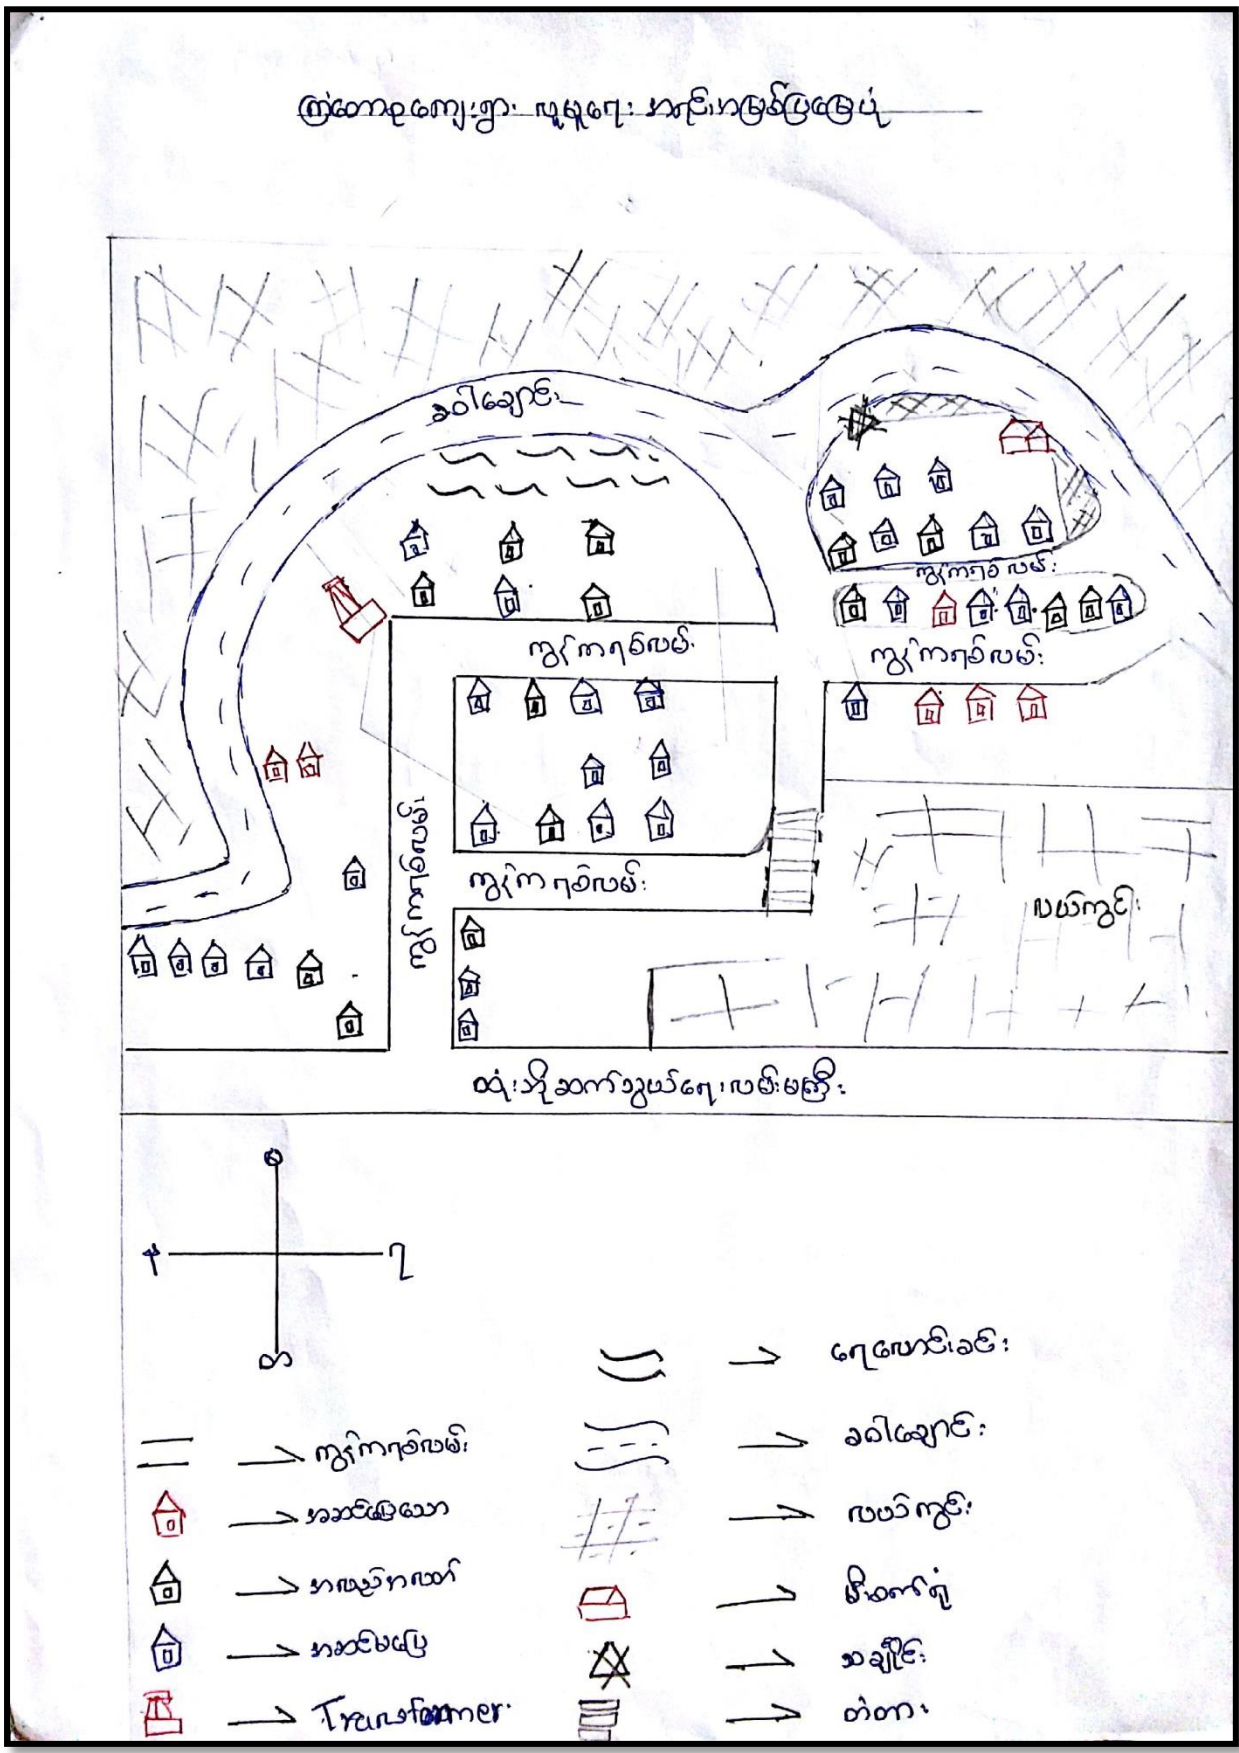 ကြံတောစုကျေးရွာ လူမှုရေး အရင်းအမြစ်ပြမြေပုံ
ခဝါချောင်း
ကွန်ကရစ်လမ်း
ကွန်ကရစ်လမ်း
ကွန်ကရစ်လမ်း
ကွန်ကရစ်လမ်း
ကွန်ကရစ်လမ်း
လယ်ကွင်း
ထုံးဘိုဆက်သွယ်ရေးလမ်းမကြီး
မ
န
ရ
တ
ကွန်ကရစ်လမ်း
အဆင်ပြေသော
အလည်အလတ်
အဆင်မပြေ
Transformer
ရေလောင်းခင်း
ခဝါချောင်း
လယ်ကွင်း
မီးစက်ရုံ
သချိုင်း
တံတား